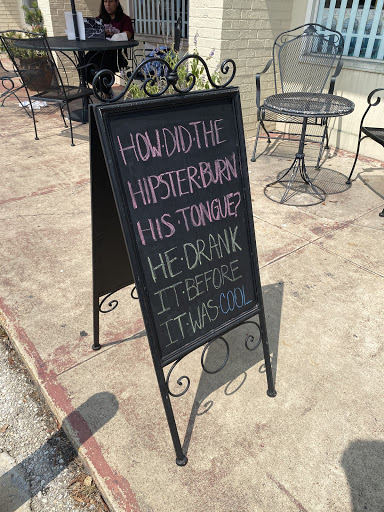 HOW·DID·THE
HIPSTER·BURN
HIS·TONGUE?
HE·DRANK
IT·BEFORE
IT·WAS COOL